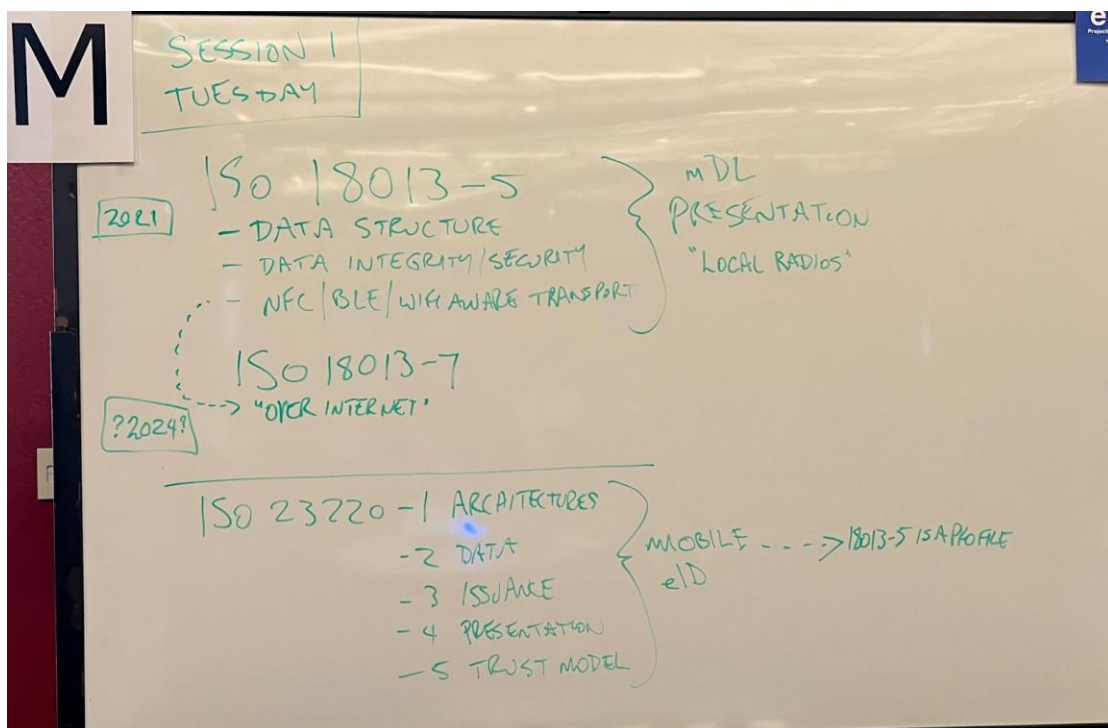 M
SESSION 1
TUESDAY
ISO 18013-5
2021
- DATA STRUCTURE
- DATA INTEGRITY/SECURITY
- NFC/BLE/WIFI AWARE TRANSPORT
mDL
PRESENTATION
"LOCAL RADIOS"
ISO 18013-7
"OVER INTERNET"
?2024?
ISO 23220-1 ARCHITECTURES
-2 DATA
-3 ISSUANCE
-4 PRESENTATION
-5 TRUST MODEL
MOBILE ----> 18013-5 IS A PROFILE
eID
e
Project